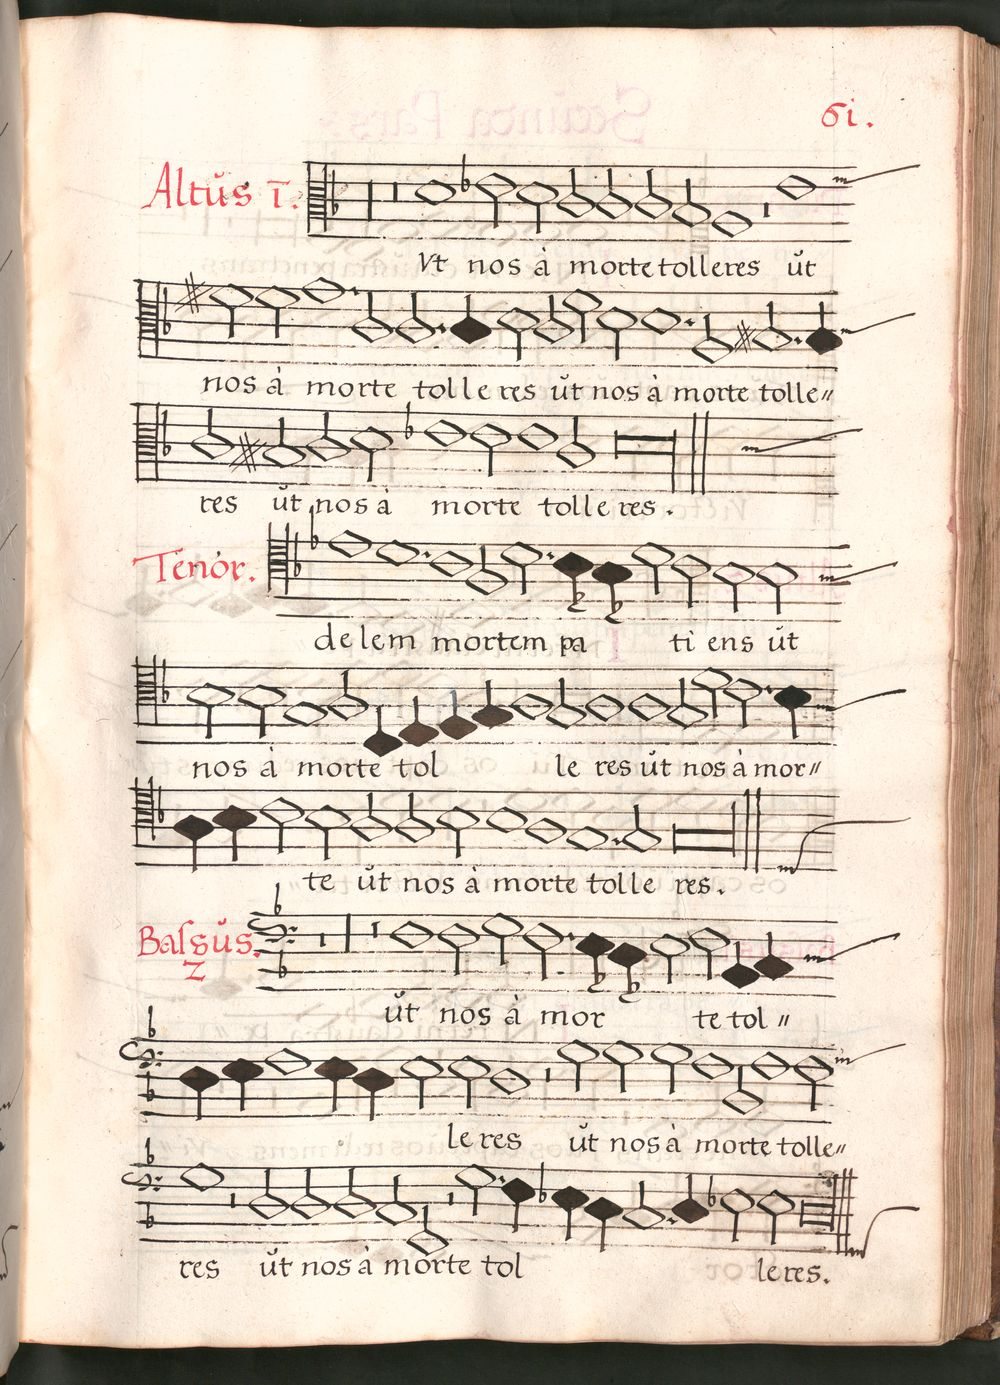 61.
Altus 1.
Vt nos à morte tolleres ut
nos à morte tolleres ut nos à morte tolle〃
res ut nos à morte tolleres.
Tenor.
delem mortem pa ti ens ut
nos à morte tol le res ut nos à mor〃
te ut nos à morte tolle res.
Baſsus. 2
ut nos à mor te tol〃
le res ut nos à morte tolle〃
res ut nos à morte tol leres.